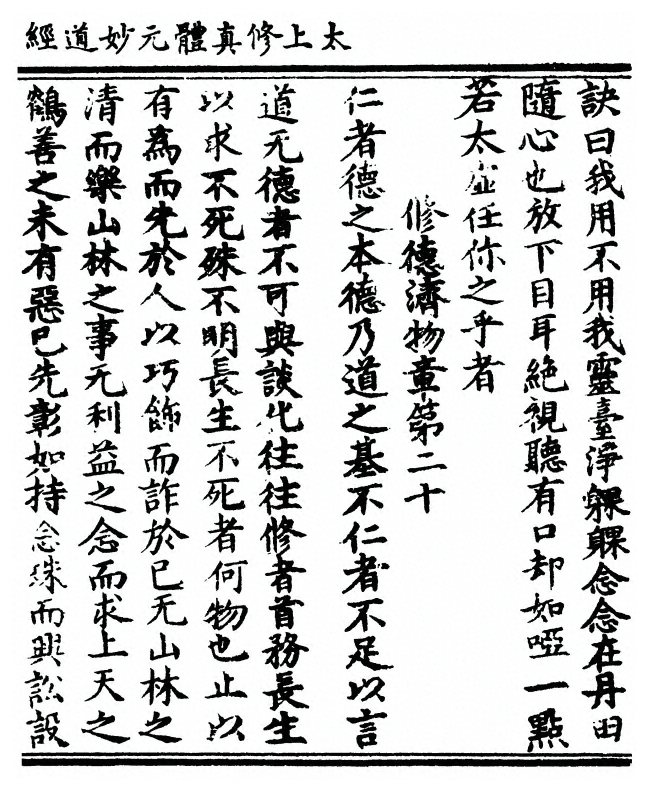 太上修真體元妙道經
訣曰我用不用我靈臺淨躶躶念念在丹田
隨心也放下目耳絕視聽有口却如啞一點
若太虛任你之乎者
修德濟物章第二十
仁者德之本德乃道之基不仁者不足以言
道无德者不可與談化往往修者首務長生
以求不死殊不明長生不死者何物也止以
有爲而先於人以巧飾而詐於已无山林之
清而樂山林之事无利益之念而求上天之
鶴善之未有惡已先彰如持念珠而興訟設